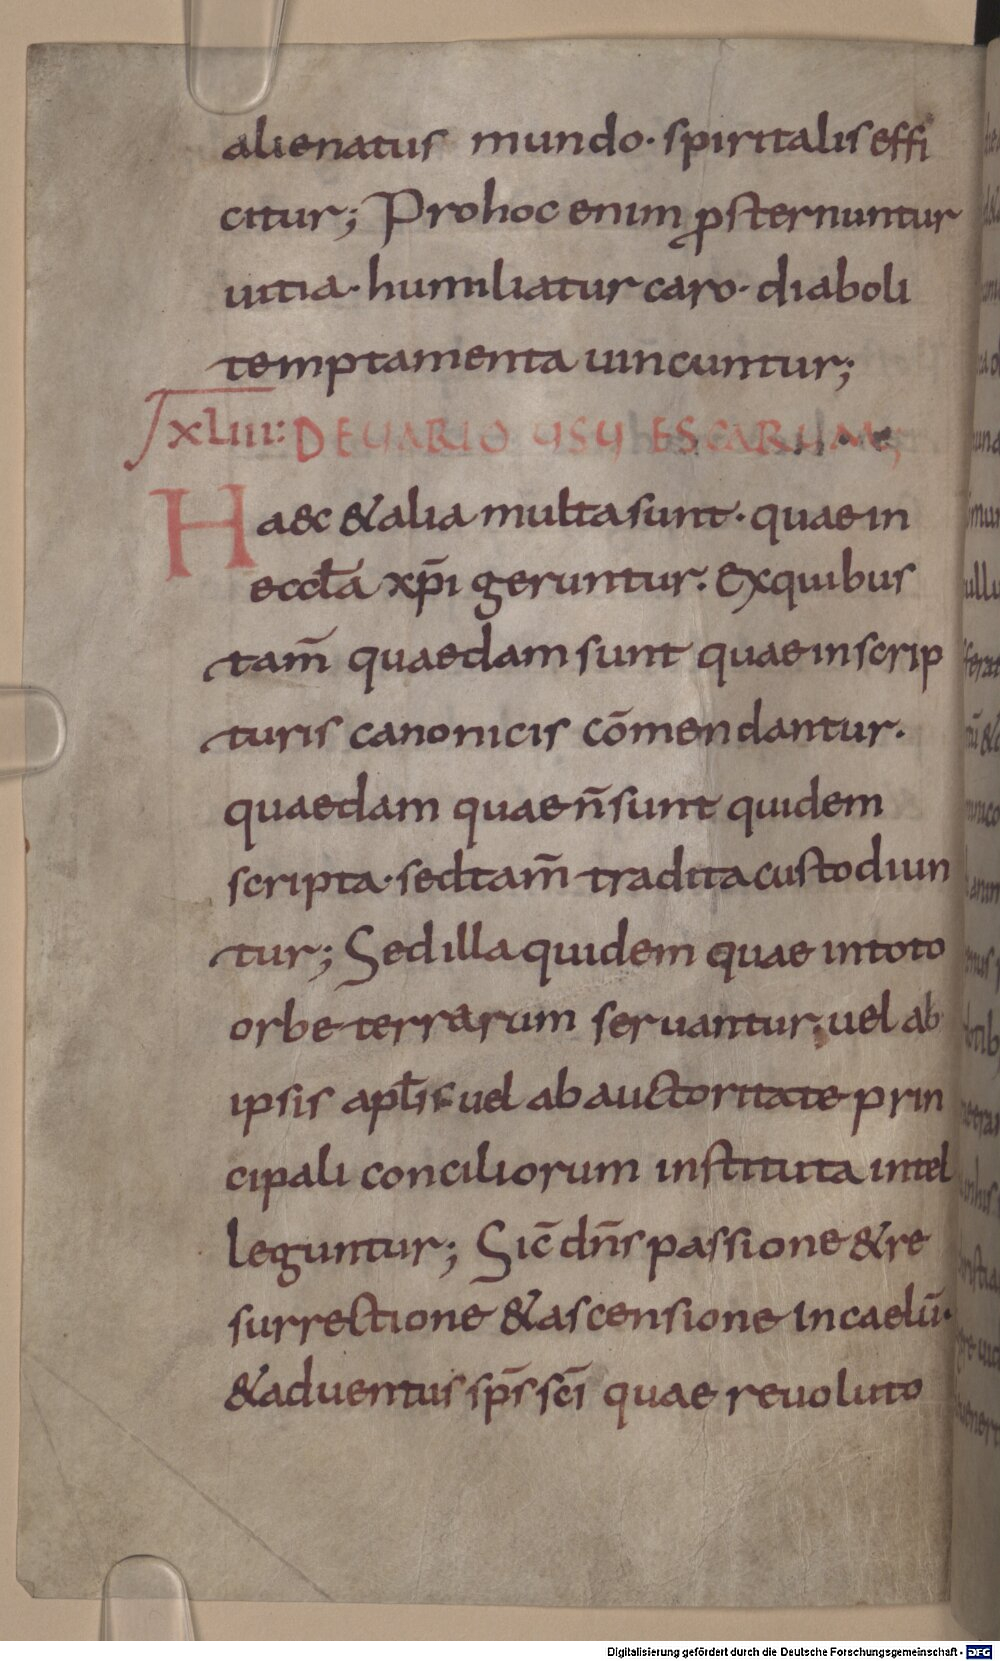 alienatus mundo· spiritalis effi
citur; Pro hoc enim ꝓsternuntur
uitia· humiliatur caro· diaboli
temptamenta uincuntur;
XLIII: DE UARIO USU ESCARUM;
Haec & alia multa sunt· quae in
eccl̄a xp̄i geruntur. Ex quibus
tam̄ quaedam sunt quae in scrip
turis canonicis cōmendantur.
quaedam quae n̄ sunt quidem
scripta· sed tam̄ tradita custodiun
tur; Sed illa quidem quae in toto
orbe terrarum seruantur, uel ab
ipsis apl̄is uel ab auctoritate prin
cipali conciliorum instituta intel
leguntur; Sic̄ dn̄s passione & re
surrectione & ascensione in caelū·
& aduentus sp̄s sc̄i quae reuoluto
Digitalisierung gefördert durch die Deutsche Forschungsgemeinschaft - DFG